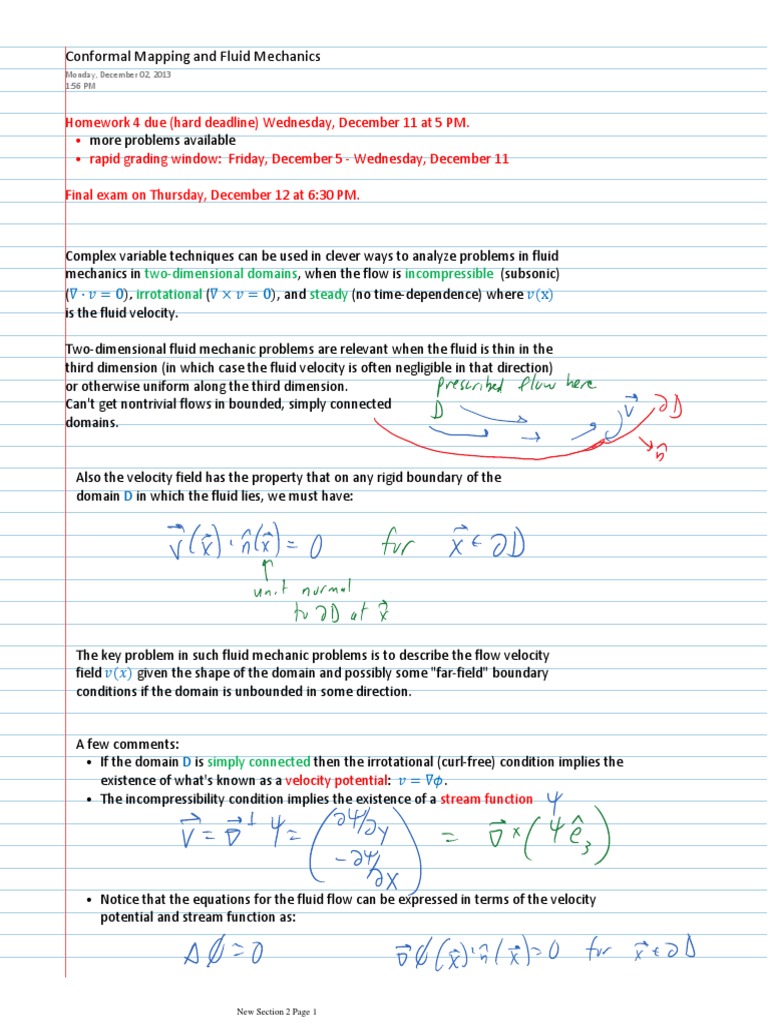 Conformal Mapping and Fluid Mechanics
Monday, December 02, 2013
1:56 PM
Homework 4 due (hard deadline) Wednesday, December 11 at 5 PM.
• more problems available
• rapid grading window: Friday, December 5 - Wednesday, December 11
Final exam on Thursday, December 12 at 6:30 PM.
Complex variable techniques can be used in clever ways to analyze problems in fluid
mechanics in two-dimensional domains, when the flow is incompressible (subsonic)
(∇ · v = 0), irrotational (∇ × v = 0), and steady (no time-dependence) where v(x)
is the fluid velocity.
Two-dimensional fluid mechanic problems are relevant when the fluid is thin in the
third dimension (in which case the fluid velocity is often negligible in that direction)
or otherwise uniform along the third dimension.
prescribed flow here
Can't get nontrivial flows in bounded, simply connected
domains.
D v⃗ ∂D
n̂
Also the velocity field has the property that on any rigid boundary of the
domain D in which the fluid lies, we must have:
v⃗(x⃗) · n̂(x⃗) = 0 for x⃗ ∈ ∂D
↑
unit normal
to ∂D at x⃗
The key problem in such fluid mechanic problems is to describe the flow velocity
field v(x) given the shape of the domain and possibly some "far-field" boundary
conditions if the domain is unbounded in some direction.
A few comments:
• If the domain D is simply connected then the irrotational (curl-free) condition implies the
existence of what's known as a velocity potential: v = ∇ϕ.
• The incompressibility condition implies the existence of a stream function Ψ
v⃗ = ∇⃗^⊥ Ψ = (∂Ψ/∂y, -∂Ψ/∂x) = ∇⃗ × (Ψ ê₃)
• Notice that the equations for the fluid flow can be expressed in terms of the velocity
potential and stream function as:
Δϕ = 0 ∇⃗ϕ(x⃗) · n̂(x⃗) = 0 for x⃗ ∈ ∂D
New Section 2 Page 1